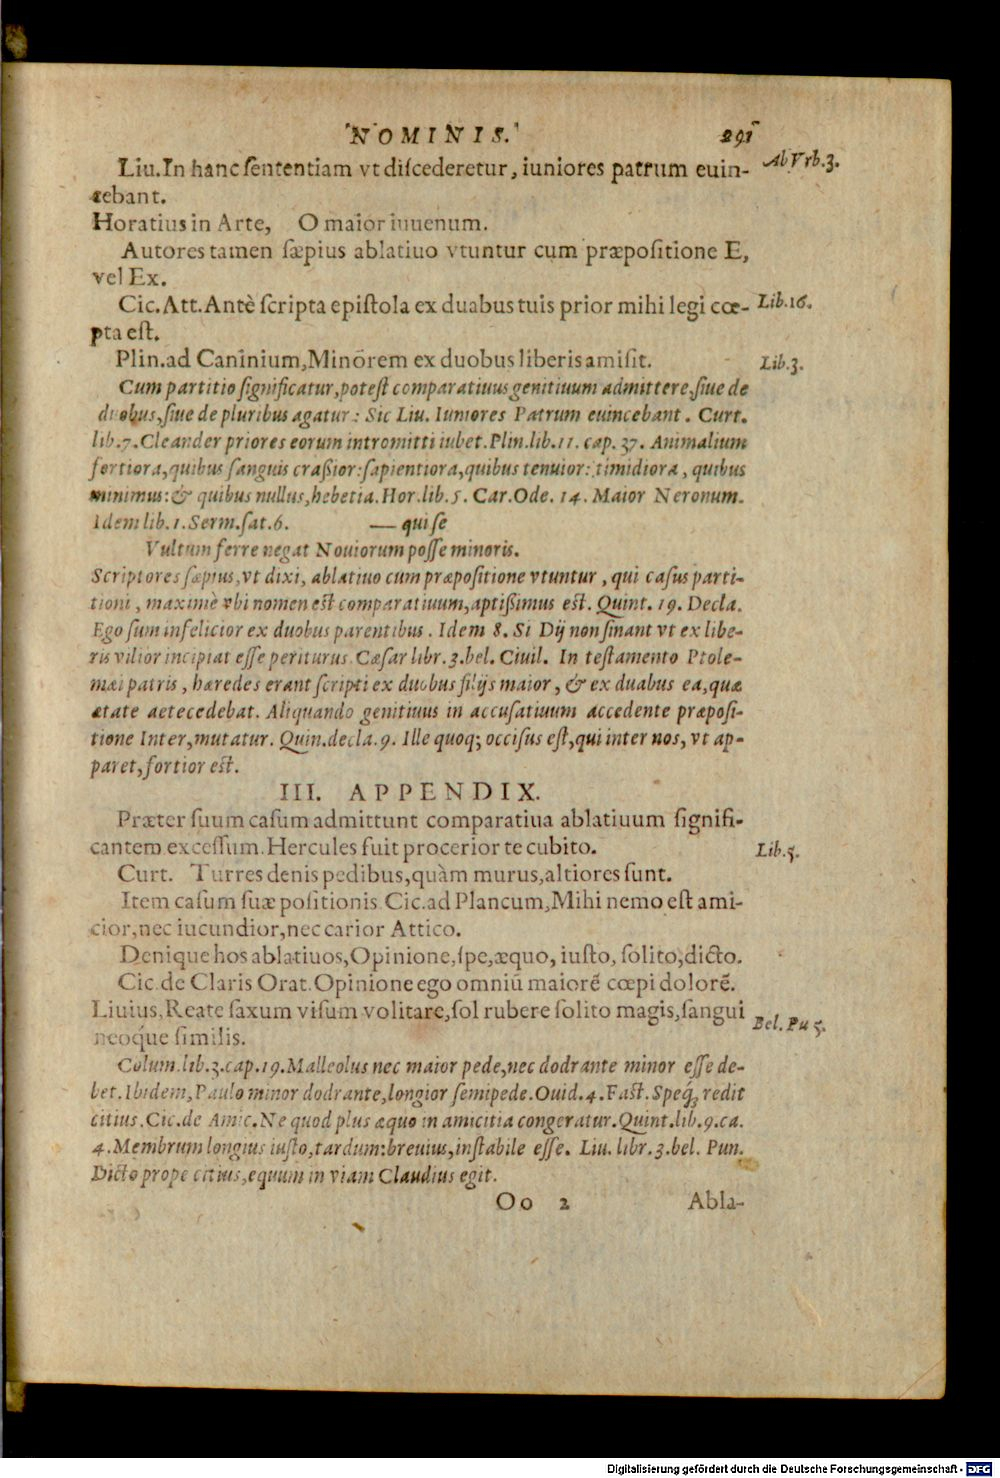 NOMINIS. 291
Liu. In hanc sententiam vt discederetur, iuniores patrum euin- Ab Vrb.3.
cebant.
Horatius in Arte, O maior iuuenum.
Autores tamen sæpius ablatiuo vtuntur cum præpositione E,
vel Ex.
Cic. Att. Antè scripta epistola ex duabus tuis prior mihi legi cœ- Lib.16.
pta est.
Plin. ad Caninium, Minorem ex duobus liberis amisit. Lib.3.
Cum partitio significatur, potest comparatiuus genitiuum admittere, siue de
duobus, siue de pluribus agatur: Sic Liu. Iuniores Patrum euincebant. Curt.
lib.7. Cleander priores eorum intromitti iubet. Plin. lib. 11. cap. 37. Animalium
fortiora, quibus sanguis crassior: sapientiora, quibus tenuior: timidiora, quibus
minimus: & quibus nullus, hebetia. Hor. lib. 5. Car. Ode. 14. Maior Neronum.
Idem lib. 1. Serm. sat. 6. — qui se
Vultum ferre negat Nouiorum posse minoris.
Scriptores sæpius, vt dixi, ablatiuo cum præpositione vtuntur, qui casus parti-
tioni, maximè vbi nomen est comparatiuum, aptissimus est. Quint. 19. Decla.
Ego sum infelicior ex duobus parentibus. Idem 8. Si Dij non sinant vt ex libe-
ris vilior incipiat esse periturus. Cæsar libr. 3. bel. Ciuil. In testamento Ptole-
mæi patris, hæredes erant scripti ex duobus filijs maior, & ex duabus ea, quæ
ætate aetecedebat. Aliquando genitiuus in accusatiuum accedente præposi-
tione Inter, mutatur. Quin. decla. 9. Ille quoq; occisus est, qui inter nos, vt ap-
paret, fortior est.
III. APPENDIX.
Præter suum casum admittunt comparatiua ablatiuum signifi-
cantem excessum. Hercules fuit procerior te cubito. Lib.5.
Curt. Turres denis pedibus, quàm murus, altiores sunt.
Item casum suæ positionis. Cic. ad Plancum, Mihi nemo est ami-
cior, nec iucundior, nec carior Attico.
Denique hos ablatiuos, Opinione, spe, æquo, iusto, solito, dicto.
Cic. de Claris Orat. Opinione ego omniū maiorē cœpi dolorē.
Liuius, Reate saxum visum volitare, sol rubere solito magis, sangui Bel. Pu 5.
neoque similis.
Colum. lib. 3. cap. 19. Malleolus nec maior pede, nec dodrante minor esse de-
bet. Ibidem, Paulo minor dodrante, longior semipede. Ouid. 4. Fast. Speq́; redit
citius. Cic. de Amic. Ne quod plus æquo in amicitia congeratur. Quint. lib. 9. ca.
4. Membrum longius iusto, tardum: breuius, instabile esse. Liu. libr. 3. bel. Pun.
Dicto prope citius, equum in viam Claudius egit.
Oo 2 Abla-
Digitalisierung gefördert durch die Deutsche Forschungsgemeinschaft - DFG